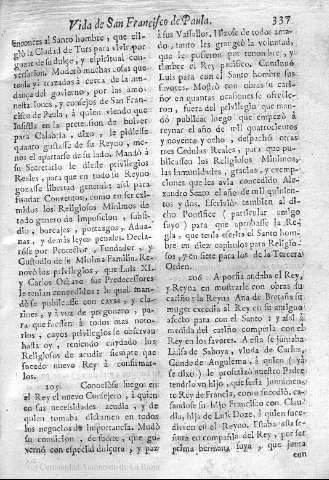 Vida de San Francisco de Paula. 337
entonces al Santo hombre, que eli-
giò la Ciudad de Turs para vivir, por
gozar de su dulce, y espiritual con-
versacion. Moderò muchas cosas que
tenia yà tratadas à cerca de la mu-
dança del govierno, por las amo-
nestaciones, y consejos de San Fran-
cisco de Paula, à quien viendo que
insistia en la pretension de bolver
para Calabria, dixo, le pidiesse
quanto gustasse de su Reyno, me-
nos el apartarse de su lado. Mandò à
su Secretario le diesse privilegios
Reales, para que en todo su Reyno
gozasse libertad general; assi para
fundar Conventos, como en ser exi-
midos los Religiosos Minimos de
todo genero de imposicion, subsi-
dio, barcajes, portazgos, Adua-
nas, y demàs leyes penales. Decla-
ròse por Protector, Fundador, y
Custodio de su Minima Familia. Re-
novò los privilegios, que Luis XI.
y Carlos Octavo sus Predecessores
le tenian concedidos: lo qual man-
dò se publicasse con caxas, y cla-
rines, y à voz de pregonero, pa-
ra que fuessen à todos mas noto-
rios, cuyos privilegios se observan
hasta oy, teniendo cuydado los
Religiosos de acudir siempre que
sucede nuevo Rey à confirmar-
los.
105 Conociòse luego en
el Rey el nuevo Consejero, à quien
en sus necessidades acudia, y de
quien tomaba dictamen en todos
los negocios de importancia. Mudò
su condicion, de suerte, que go-
vernò con especial dulçura, y paz
à sus Vassallos, hizose de todos ama-
do, tanto les grangeò la voluntad,
que le pusieron por renombre, y
timbre el Rey pacifico. Continuò
Luis para con el Santo hombre sus
favores. Mostrò con obras su cari-
ño en quantas ocasiones se ofrecie-
ron, fuera del privilegio que man-
dò publicar luego que empezò à
reynar el año de mil quatrocientos
y noventa y ocho, despachò otras
tres Cedulas Reales, para que pu-
blicassen los Religiosos Minimos,
las inmunidades, gracias, y exemp-
ciones que les avia concedido Ale-
xandro Sexto al año de mil quinien-
tos y dos. Escriviò tambien al di-
cho Pontifice (particular amigo
suyo) para que aprobasse la Re-
gla, que tenia escrita el Santo hom-
bre en diez capitulos para Religio-
sos, y en siete para los de Tercera
Orden.
106 A porfia andaba el Rey,
y Reyna en mostrarle con obras su
cariño: la Reyna Ana de Bretaña su
muger excedia al Rey en su animo
afecto para con el Santo: y assi à
medida del cariño competia con el
Rey en los favores. A esta se juntaba
Luisa de Saboya, viuda de Carlos,
Conde de Angulema, à quien (yà
se dixo) le profetizò nuestro Padre
tendria vn hijo, que seria juntamen-
te Rey de Francia, como sucediò, ca-
sandose su hijo Francisco con Clau-
dia, hija de Luis Doze, à quien suce-
dieron en el Reyno. Estaba esta se-
ñora en compañia del Rey, por ser
prima hermana suya, que junta
con
(C) Comunidad Autónoma de La Rioja